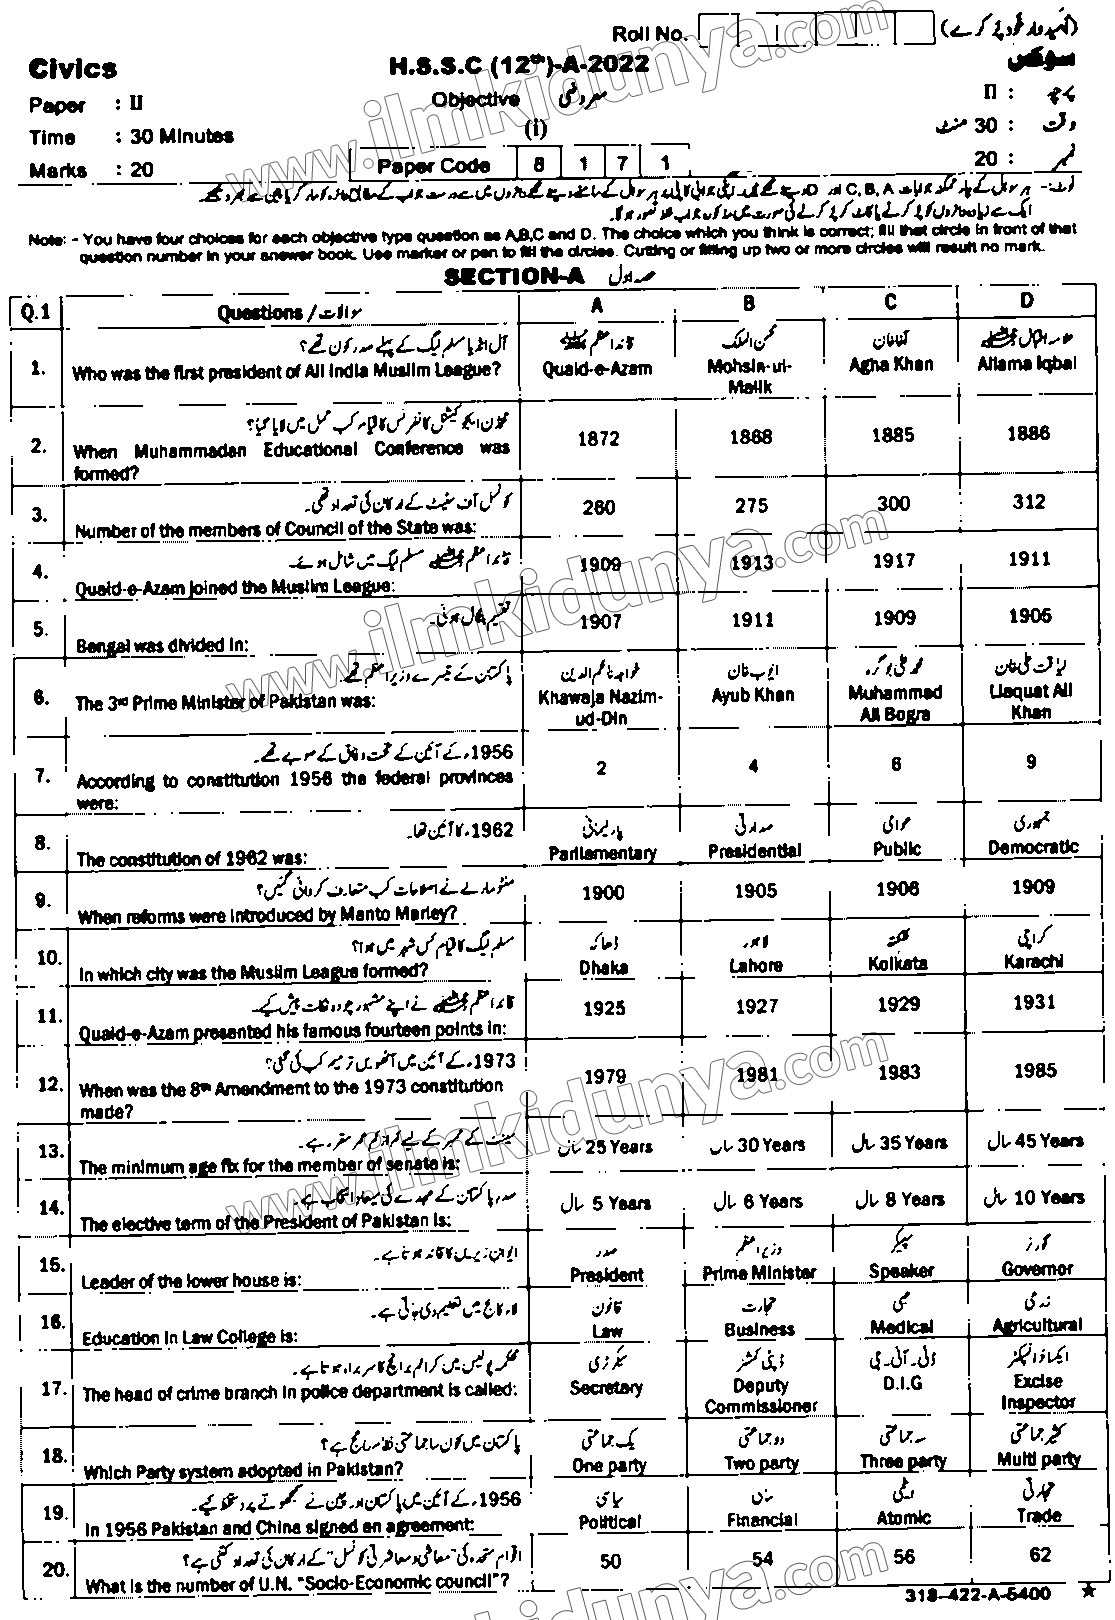 Roll No. (امیدوار خود پُر کرے)
Civics H.S.S.C (12th)-A-2022 سوکس
Paper : II Objective معروضی پرچہ : II
Time : 30 Minutes (i) وقت : 30 منٹ
Marks : 20 Paper Code 8 1 7 1 نمبر : 20
Note: - You have four choices for each objective type question as A,B,C and D. The choice which you think is correct; fill that circle in front of that
question number in your answer book. Use marker or pen to fill the circles. Cutting or filling up two or more circles will result no mark.
SECTION-A حصہ اول
Q.1 Questions / سوالات A B C D
آل انڈیا مسلم لیگ کے پہلے صدر کون تھے؟ قائداعظم محسن الملک آغاخان علامہ اقبال
1. Who was the first president of All India Muslim League? Quaid-e-Azam Mohsin-ul-Malik Agha Khan Allama Iqbal
محمڈن ایجوکیشنل کانفرنس کا قیام کب عمل میں لایا گیا؟
2. When Muhammadan Educational Conference was formed? 1872 1868 1885 1886
کونسل آف سٹیٹ کے ارکان کی تعداد تھی۔
3. Number of the members of Council of the State was: 260 275 300 312
قائداعظم مسلم لیگ میں شامل ہوئے۔
4. Quaid-e-Azam joined the Muslim League: 1909 1913 1917 1911
تقسیم بنگال ہوئی۔
5. Bengal was divided in: 1907 1911 1909 1906
پاکستان کے تیسرے وزیراعظم تھے۔ خواجہ ناظم الدین ایوب خان محمد علی بوگرہ لیاقت علی خان
6. The 3rd Prime Minister of Pakistan was: Khawaja Nazim-ud-Din Ayub Khan Muhammad Ali Bogra Liaquat Ali Khan
1956ء کے آئین کے تحت وفاق کے صوبے تھے۔
7. According to constitution 1956 the federal provinces were: 2 4 6 9
1962ء کا آئین تھا۔ پارلیمانی صدارتی عوامی جمہوری
8. The constitution of 1962 was: Parliamentary Presidential Public Democratic
منٹو مارلے نے اصلاحات کب متعارف کروائی گئیں؟
9. When reforms were introduced by Manto Marley? 1900 1905 1906 1909
مسلم لیگ کا قیام کس شہر میں ہوا؟ ڈھاکہ لاہور کلکتہ کراچی
10. In which city was the Muslim League formed? Dhaka Lahore Kolkata Karachi
قائداعظم نے اپنے مشہور چودہ نکات پیش کیے۔
11. Quaid-e-Azam presented his famous fourteen points in: 1925 1927 1929 1931
1973ء کے آئین میں آٹھویں ترمیم کب کی گئی؟
12. When was the 8th Amendment to the 1973 constitution made? 1979 1981 1983 1985
سینٹ کے ممبر کے لیے کم از کم عمر مقرر ہے۔
13. The minimum age fix for the member of senate is: 25 Years سال 30 Years سال 35 Years سال 45 Years سال
صدر پاکستان کے عہدے کی میعاد انتخاب ہے۔
14. The elective term of the President of Pakistan is: 5 Years سال 6 Years سال 8 Years سال 10 Years سال
ایوان زیریں کا قائد ہوتا ہے۔ صدر وزیراعظم سپیکر گورنر
15. Leader of the lower house is: President Prime Minister Speaker Governor
لاء کالج میں تعلیم دی جاتی ہے۔ قانون تجارت طبی زرعی
16. Education in Law College is: Law Business Medical Agricultural
محکمہ پولیس میں کرائم برانچ کا سربراہ ہوتا ہے۔ سیکرٹری ڈپٹی کمشنر ڈی۔آئی۔جی ایکسائز انسپکٹر
17. The head of crime branch in police department is called: Secretary Deputy Commissioner D.I.G Excise Inspector
پاکستان میں کون سا جماعتی نظام رائج ہے؟ یک جماعتی دو جماعتی سہ جماعتی کثیر جماعتی
18. Which Party system adopted in Pakistan? One party Two party Three party Multi party
1956ء کے آئین میں پاکستان اور چین نے سمجھوتے پر دستخط کیے۔ سیاسی مالی ایٹمی تجارتی
19. In 1956 Pakistan and China signed an agreement: Political Financial Atomic Trade
اقوام متحدہ کی "معاشی و معاشرتی کونسل" کے ارکان کی تعداد کتنی ہے؟
20. What is the number of U.N. "Socio-Economic council"? 50 54 56 62
318-422-A-5400
www.ilmkidunya.com
www.ilmkidunya.com
www.ilmkidunya.com